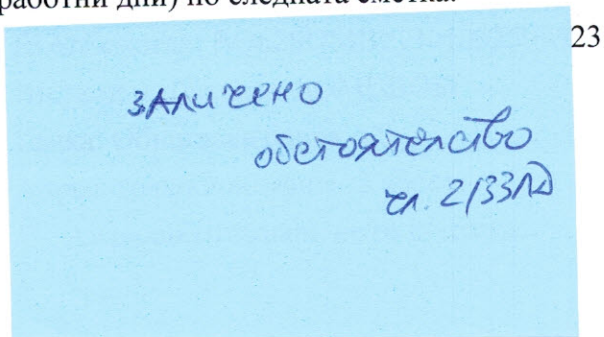 работни дни) по следната сметка:
23
заличено
обстоятелство
чл. 2/ЗЗЛД